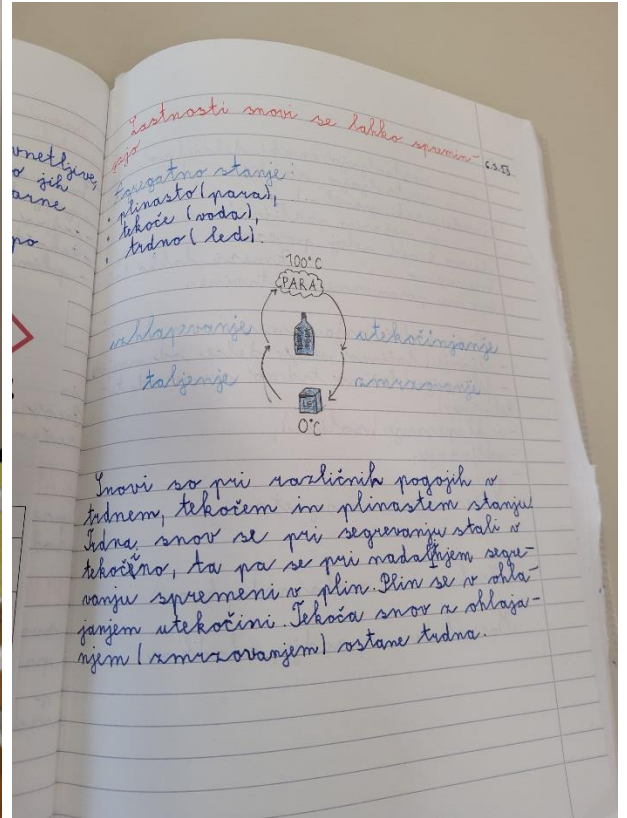 vnetljive,
o jih
arne
po
Lastnosti snovi se lahko spremin-
jajo
Agregatno stanje:
• plinasto (para),
• tekoče (voda),
• trdno (led).
100°C
PARA
izhlapevanje
utekočinjanje
taljenje
zmrzovanje
LED
0°C
Snovi so pri različnih pogojih v
trdnem, tekočem in plinastem stanju.
Trdna snov se pri segrevanju stali v
tekočino, ta pa se pri nadaljnjem segre-
vanju spremeni v plin. Plin se v ohla-
janjem utekočini. Tekoča snov z ohlaja-
njem (zmrzovanjem) ostane trdna.